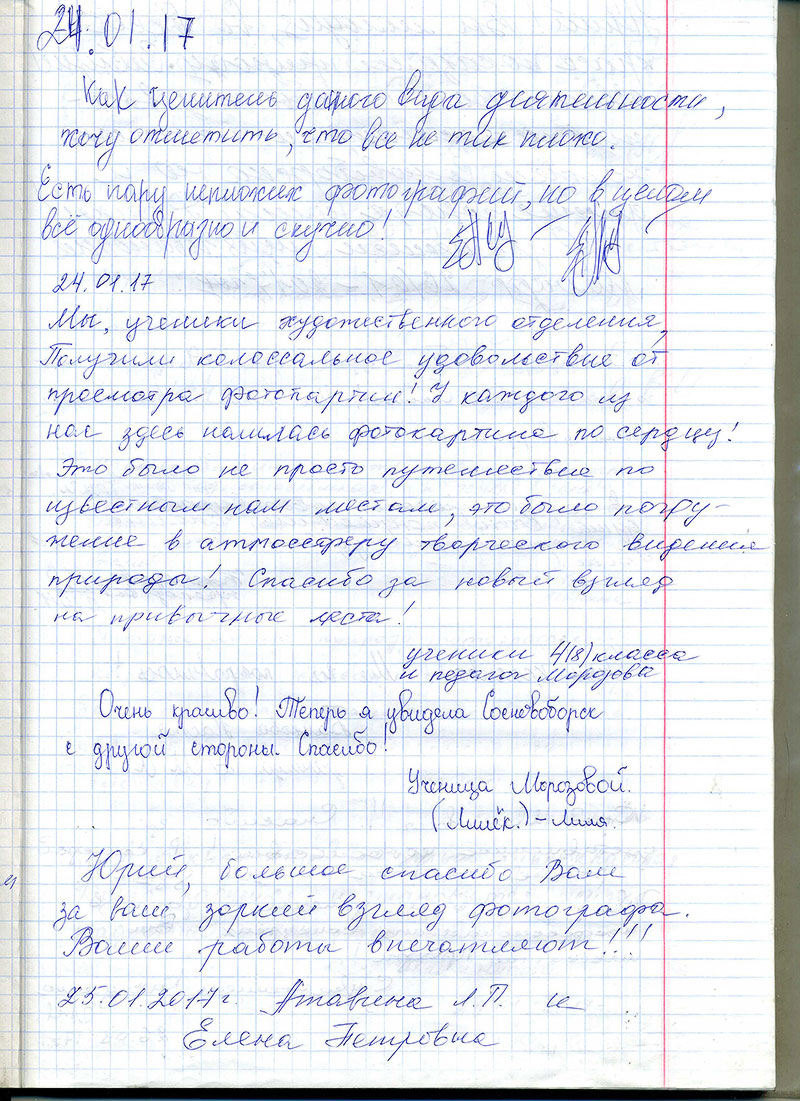 24.01.17
Как ценитель данного вида деятельности,
хочу отметить, что все не так плохо.
Есть пару неплохих фотографий, но в целом
всё однообразно и скучно!
24.01.17
Мы, ученики художественного отделения,
Получили колоссальное удовольствие от
просмотра фотокартин! У каждого из
нас здесь нашлась фотокартина по сердцу!
Это было не просто путешествие по
известным нам местам, это было погру-
жение в атмосферу творческого видения
природы! Спасибо за новый взгляд
на привычные места!
ученики 4(8) класса
и педагог Морозова
Очень красиво! Теперь я увидела Сосновоборск
с другой стороны. Спасибо!
Ученица Морозовой.
(Лилёк.) – Лиля.
Юрий, большое спасибо Вам
за ваш зоркий взгляд фотографа.
Ваши работы впечатляют!!!
25.01.2017г. Л.П. и
Елена Петровна